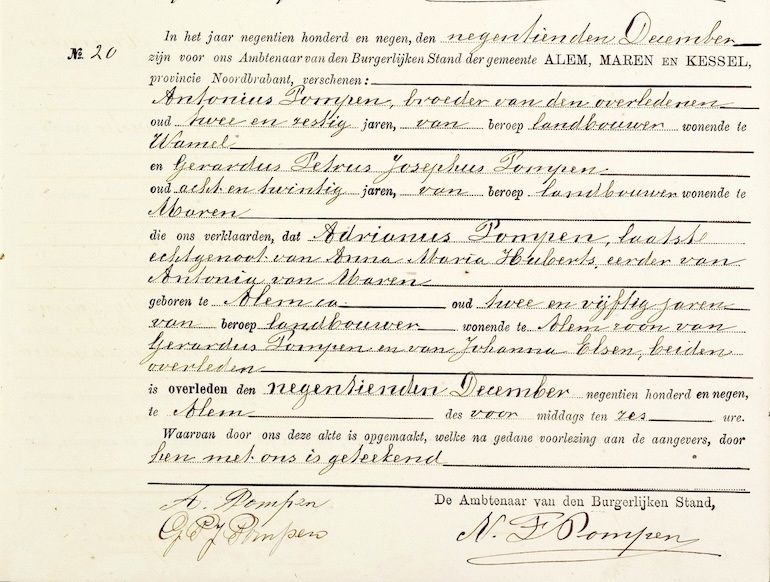 №. 20
In het jaar negentien honderd en negen, den negentienden December
zijn voor ons Ambtenaar van den Burgerlijken Stand der gemeente ALEM, MAREN EN KESSEL,
provincie Noordbrabant, verschenen:
Antonius Pompen, broeder van den overledenen
oud twee en zestig jaren, van beroep landbouwer wonende te
Wamel
en Gerardus Petrus Josephus Pompen
oud acht en twintig jaren, van beroep landbouwer wonende te
Maren
die ons verklaarden, dat Adrianus Pompen, laatst
echtgenoot van Anna Maria Huberts, eerder van
Antonia van Maren
geboren te Alem ca. oud twee en vijftig jaren
van beroep landbouwer wonende te Alem zoon van
Gerardus Pompen en van Johanna Elsen, beiden
overleden
is overleden den negentienden December negentien honderd en negen,
te Alem des voor middags ten zes ure.
Waarvan door ons deze akte is opgemaakt, welke na gedane voorlezing aan de aangevers, door
hen met ons is geteekend
A. Pompen
De Ambtenaar van den Burgerlijken Stand,
G P J Pompen
N. F Pompen